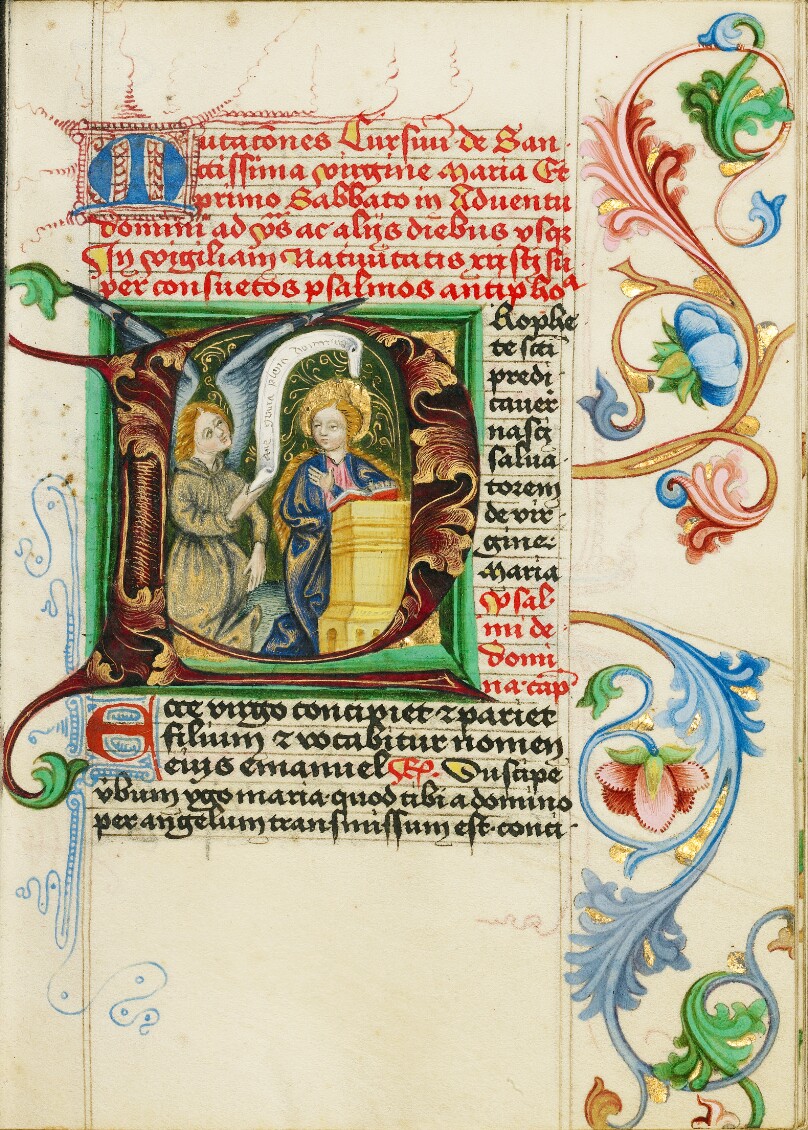 Mutatōnes Cursuū de San
ctissima virgine Maria Et
primo Sabbato in Adventu
domini ad vꝑ̄s ac alijs diebus vsqꝫ
In vigiliam Natiuitatis xp̄isti su
per consuetos psalmos antiphoᵃ
Prophe
te scti
predi
cauer
nascꝫ
salua
torem
de vir
gine
Maria
psal
mi de
domi
na cap
ave gracia plena dominus
Ecce virgo concipiet ⁊ pariet
filium ⁊ vocabitur nomen
eius emanuel Rp. Suscipe
vbum vgo maria quod tibi a domino
per angelum transmissum est. conci